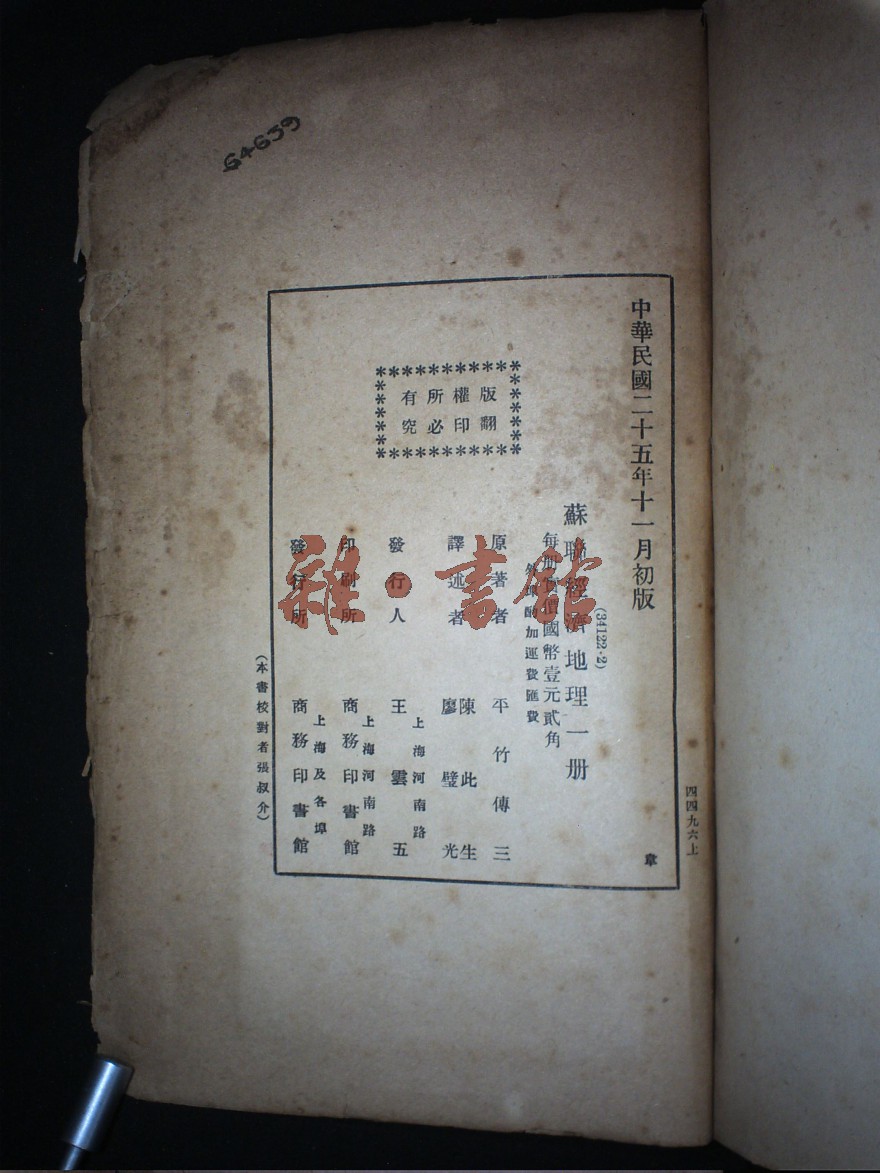 64639
中華民國二十五年十一月初版
四四九六上
章
(34122·2)
蘇聯經濟地理一册
每册定價國幣壹元貳角
外埠酌加運費匯費
原著者 平竹傳三
譯述者 陳此生
廖璧光
發行人 王雲五
上海河南路
印刷所 商務印書館
上海河南路
發行所 商務印書館
上海及各埠
版權所有
翻印必究
(本書校對者張叔介)
雜·書館